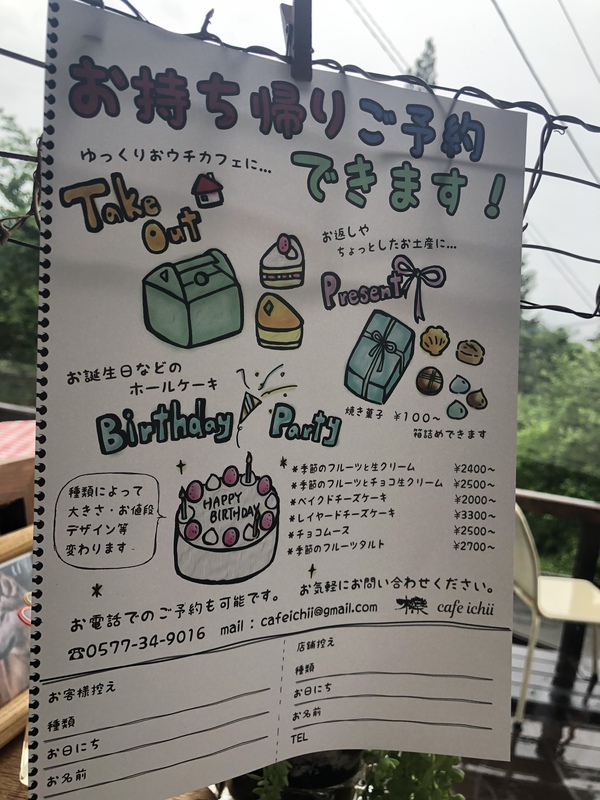 お持ち帰りご予約
できます!
ゆっくりおウチカフェに...
Take
Out
お返しや
ちょっとしたお土産に...
Present
焼き菓子 ¥100~
箱詰めできます
お誕生日などの
ホールケーキ
Birthday Party
HAPPY
BIRTHDAY
種類によって
大きさ・お値段
デザイン等
変わります.
*季節のフルーツと生クリーム ¥2400~
*季節のフルーツとチョコ生クリーム ¥2500~
*ベイクドチーズケーキ ¥2000~
*レイヤードチーズケーキ ¥3300~
*チョコムース ¥2500~
*季節のフルーツタルト ¥2700~
お気軽にお問い合わせください。
お電話でのご予約も可能です。
☎0577-34-9016 mail : cafeichii@gmail.com cafe ichii
お客様控え
種類
お日にち
お名前
店舗控え
種類
お日にち
お名前
TEL